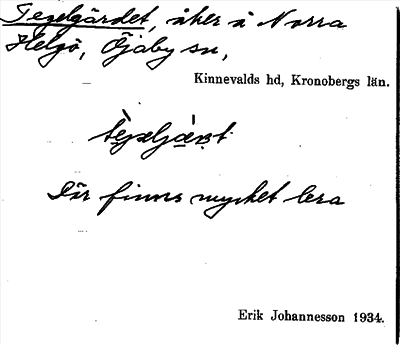 Tegelgärdet, åker å Norra
Helgö, Öjaby sn,
Kinnevalds hd, Kronobergs län.
Där finns mycket lera
Erik Johannesson 1934.